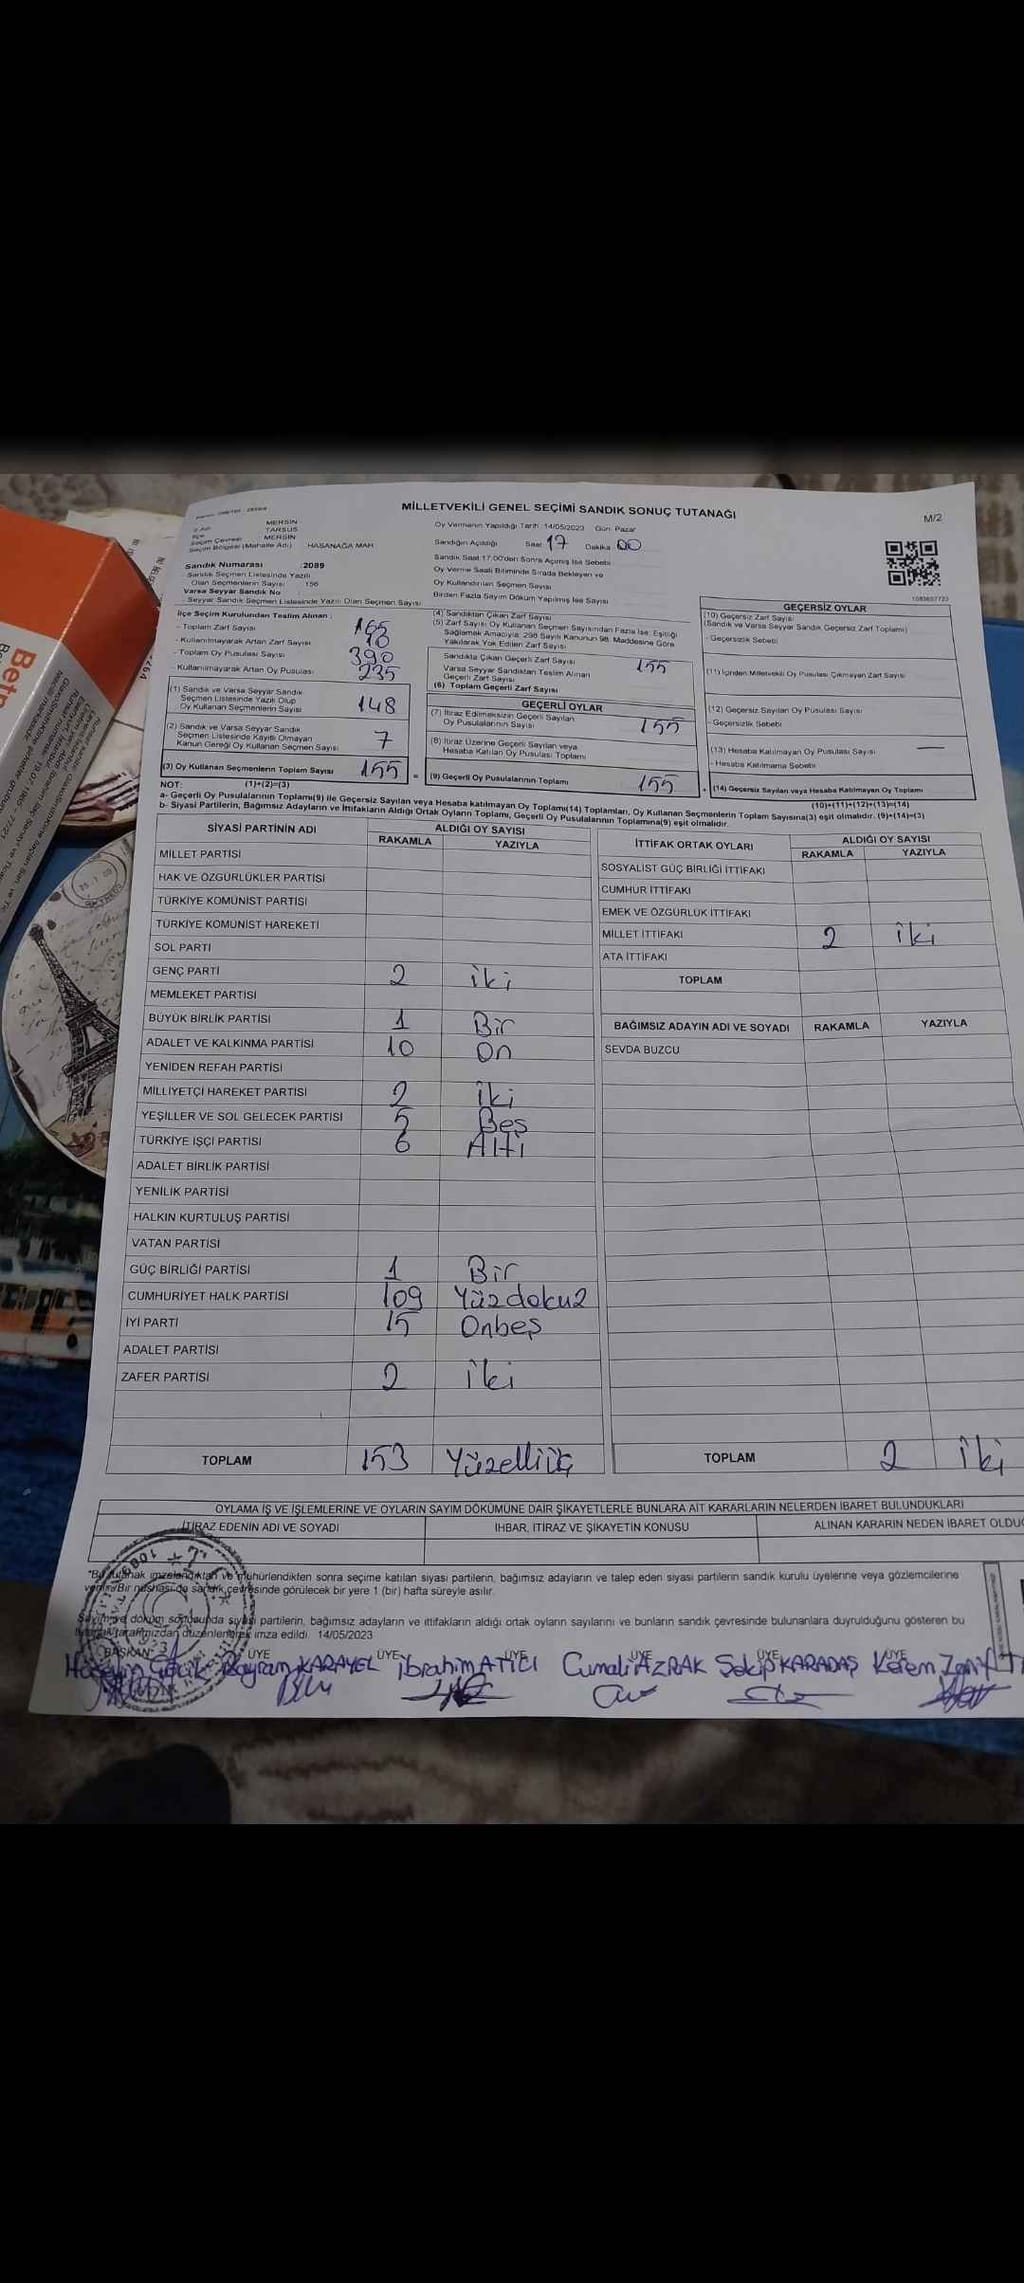 MİLLETVEKİLİ GENEL SEÇİMİ SANDIK SONUÇ TUTANAĞI
M/2
MERSİN
TARSUS
Seçim Çevresi MERSİN
Seçim Bölgesi (Mahalle Adı) HASANAĞA MAH
Sandık Numarası 2089
Sandık Seçmen Listesinde Yazılı
Olan Seçmenlerin Sayısı 156
Varsa Seyyar Sandık No
Seyyar Sandık Seçmen Listesinde Yazılı Olan Seçmen Sayısı
Oy Vermenin Yapıldığı Tarih 14/05/2023 Gün Pazar
Sandığın Açıldığı Saat 17 Dakika 00
Sandık Saat 17.00'den Sonra Açılmış İse Sebebi
Oy Verme Saati Bitiminde Sırada Bekleyen ve
Oy Kullandırılan Seçmen Sayısı
Birden Fazla Sayım Döküm Yapılmış İse Sayısı
1083607723
İlçe Seçim Kurulundan Teslim Alınan
- Toplam Zarf Sayısı 165
- Kullanılmayarak Artan Zarf Sayısı 10
- Toplam Oy Pusulası Sayısı 390
- Kullanılmayarak Artan Oy Pusulası 235
(1) Sandık ve Varsa Seyyar Sandık
Seçmen Listesinde Yazılı Olup
Oy Kullanan Seçmenlerin Sayısı 148
(2) Sandık ve Varsa Seyyar Sandık
Seçmen Listesinde Kayıtlı Olmayan
Kanun Gereği Oy Kullanan Seçmen Sayısı 7
(3) Oy Kullanan Seçmenlerin Toplam Sayısı 155
(1)+(2)=(3)
(4) Sandıktan Çıkan Zarf Sayısı
(5) Zarf Sayısı Oy Kullanan Seçmen Sayısından Fazla İse, Eşitliği
Sağlamak Amacıyla, 298 Sayılı Kanunun 98. Maddesine Göre
Yakılarak Yok Edilen Zarf Sayısı
Sandıkta Çıkan Geçerli Zarf Sayısı 155
Varsa Seyyar Sandıktan Teslim Alınan
Geçerli Zarf Sayısı
(6) Toplam Geçerli Zarf Sayısı
GEÇERLİ OYLAR
(7) İtiraz Edilmeksizin Geçerli Sayılan
Oy Pusulalarının Sayısı 155
(8) İtiraz Üzerine Geçerli Sayılan veya
Hesaba Katılan Oy Pusulası Toplamı
(9) Geçerli Oy Pusulalarının Toplamı 155
GEÇERSİZ OYLAR
(10) Geçersiz Zarf Sayısı
(Sandık ve Varsa Seyyar Sandık Geçersiz Zarf Toplamı)
- Geçersizlik Sebebi
(11) İçinden Milletvekili Oy Pusulası Çıkmayan Zarf Sayısı
(12) Geçersiz Sayılan Oy Pusulası Sayısı
- Geçersizlik Sebebi
(13) Hesaba Katılmayan Oy Pusulası Sayısı —
- Hesaba Katılmama Sebebi
(14) Geçersiz Sayılan veya Hesaba Katılmayan Oy Toplamı
(10)+(11)+(12)+(13)=(14)
NOT:
a- Geçerli Oy Pusulalarının Toplamı(9) ile Geçersiz Sayılan veya Hesaba katılmayan Oy Toplamı(14) Toplamları, Oy Kullanan Seçmenlerin Toplam Sayısına(3) eşit olmalıdır. (9)+(14)=(3)
b- Siyasi Partilerin, Bağımsız Adayların ve İttifakların Aldığı Ortak Oyların Toplamı, Geçerli Oy Pusulalarının Toplamına(9) eşit olmalıdır.
SİYASİ PARTİNİN ADI ALDIĞI OY SAYISI
RAKAMLA YAZIYLA
MİLLET PARTİSİ
HAK VE ÖZGÜRLÜKLER PARTİSİ
TÜRKİYE KOMÜNİST PARTİSİ
TÜRKİYE KOMÜNİST HAREKETİ
SOL PARTİ
GENÇ PARTİ 2 iki
MEMLEKET PARTİSİ
BÜYÜK BİRLİK PARTİSİ 1 Bir
ADALET VE KALKINMA PARTİSİ 10 On
YENİDEN REFAH PARTİSİ
MİLLİYETÇİ HAREKET PARTİSİ 2 iki
YEŞİLLER VE SOL GELECEK PARTİSİ 5 Beş
TÜRKİYE İŞÇİ PARTİSİ 6 Altı
ADALET BİRLİK PARTİSİ
YENİLİK PARTİSİ
HALKIN KURTULUŞ PARTİSİ
VATAN PARTİSİ
GÜÇ BİRLİĞİ PARTİSİ 1 Bir
CUMHURİYET HALK PARTİSİ 109 Yüzdokuz
İYİ PARTİ 15 Onbeş
ADALET PARTİSİ
ZAFER PARTİSİ 2 iki
TOPLAM 153 Yüzelliüç
İTTİFAK ORTAK OYLARI ALDIĞI OY SAYISI
RAKAMLA YAZIYLA
SOSYALİST GÜÇ BİRLİĞİ İTTİFAKI
CUMHUR İTTİFAKI
EMEK VE ÖZGÜRLÜK İTTİFAKI
MİLLET İTTİFAKI 2 iki
ATA İTTİFAKI
TOPLAM
BAĞIMSIZ ADAYIN ADI VE SOYADI RAKAMLA YAZIYLA
SEVDA BUZCU
TOPLAM 2 iki
OYLAMA İŞ VE İŞLEMLERİNE VE OYLARIN SAYIM DÖKÜMÜNE DAİR ŞİKAYETLERLE BUNLARA AİT KARARLARIN NELERDEN İBARET BULUNDUKLARI
İTİRAZ EDENİN ADI VE SOYADI İHBAR, İTİRAZ VE ŞİKAYETİN KONUSU ALINAN KARARIN NEDEN İBARET OLDUĞ
"Bu tutanak imzalandıktan ve mühürlendikten sonra seçime katılan siyasi partilerin, bağımsız adayların ve talep eden siyasi partilerin sandık kurulu üyelerine veya gözlemcilerine
verilir. Bir nüshası da sandık çevresinde görülecek bir yere 1 (bir) hafta süreyle asılır.
Sayım ve döküm sonucunda siyasi partilerin, bağımsız adayların ve ittifakların aldığı ortak oyların sayılarını ve bunların sandık çevresinde bulunanlara duyrulduğunu gösteren bu
tutanak tarafımızdan düzenlenerek imza edildi. 14/05/2023
BAŞKAN ÜYE ÜYE ÜYE ÜYE ÜYE
Bayram KARAYEL İbrahim ATICI Cumali AZRAK Sekip KARADAŞ Kerem